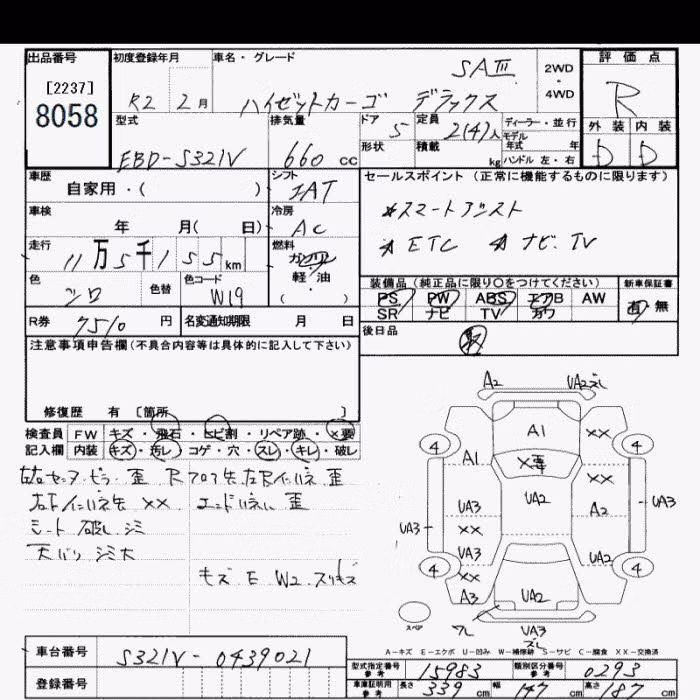 出品番号 初度登録年月 車名・グレード 評価点
[2237] SAⅢ 2WD
8058 R2 2月 ハイゼットカーゴ デラックス ・4WD R
型式 排気量 ドア 定員 ディーラー・並行 外装 内装
5 2(4)人 モデル
形状 積載 年式 年 D D
EBD-S321V 660cc kg ハンドル 左・右
車歴 シフト セールスポイント（正常に機能するものに限ります）
自家用・( ) IAT
車検 冷房 *スマートアシスト
年 月( 日) AC
走行 燃料 *ETC *ナビ.TV
11万5千155km ガソリン
色 色替 色コード 軽・油 装備品（純正品に限り〇をつけてください） 新車保証書
シロ W19 ( ) PS PW ABS エアB AW 有 無
R券 7510円 名変通知期限 月 日 SR ナビ TV カワ
注意事項申告欄(不具合内容等は具体的に記入して下さい) 後日品
取
修復歴 有〔箇所 〕
検査員 FW キズ・飛石・ヒビ割・リペア跡・×要
記入欄 内装 キズ・汚レ・コゲ・穴・スレ・キレ・破レ
歪 Rフロア 歪
XX 歪
シート 破レ シミ
天バリ シミ大
キズ E W2 スリキズ
A2 UA2
A1 XX
4 A1 ×要 4
XX
UA3 UA2 A2
UA3 XX UA3
UA3 UA2
4 XX 4
A3 UA2
スペア UA3
A-キズ E-エクボ U-凹み W-補修跡 S-サビ C-腐食 XX-交換済
車台番号 S321V-0439021 型式指定番号 参考 15983 類別区分番号 参考 0293
登録番号 車庫証明用 参考 長さ 339cm 幅 147cm 高さ 187cm